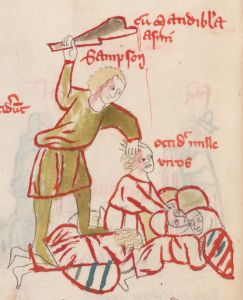 cū mandibula
asini
Sampson
occidit mille
viros